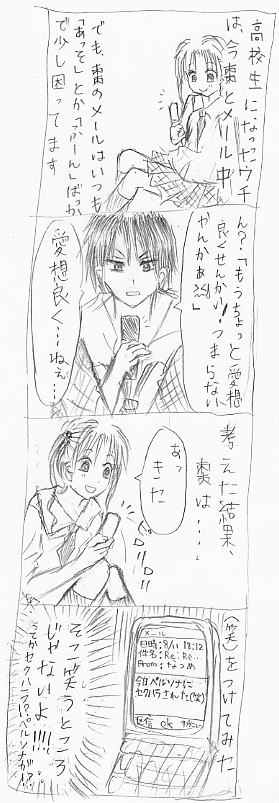 高校生になったウチ
は、今棗とメール中
でも、棗のメールはいつも
「あっそ」とか「ふーん」ばっか
で少し困ってます
ん?「もうちょっと愛想
良くせんかい!つまらない
やんかぁ
」
愛想
良く…ねぇ…
考えた結果、
棗は…」
あっ
きた
ピロリロリ
(笑)をつけてみた
メール
日時:8/11 18:12
件名:Re:Re..
From:なつめ
今日ペルソナに
セクハラされた(笑)
返信 ok
そこ笑うところ
じゃないよ!!!!
セクハラ!?ペルソナが!?